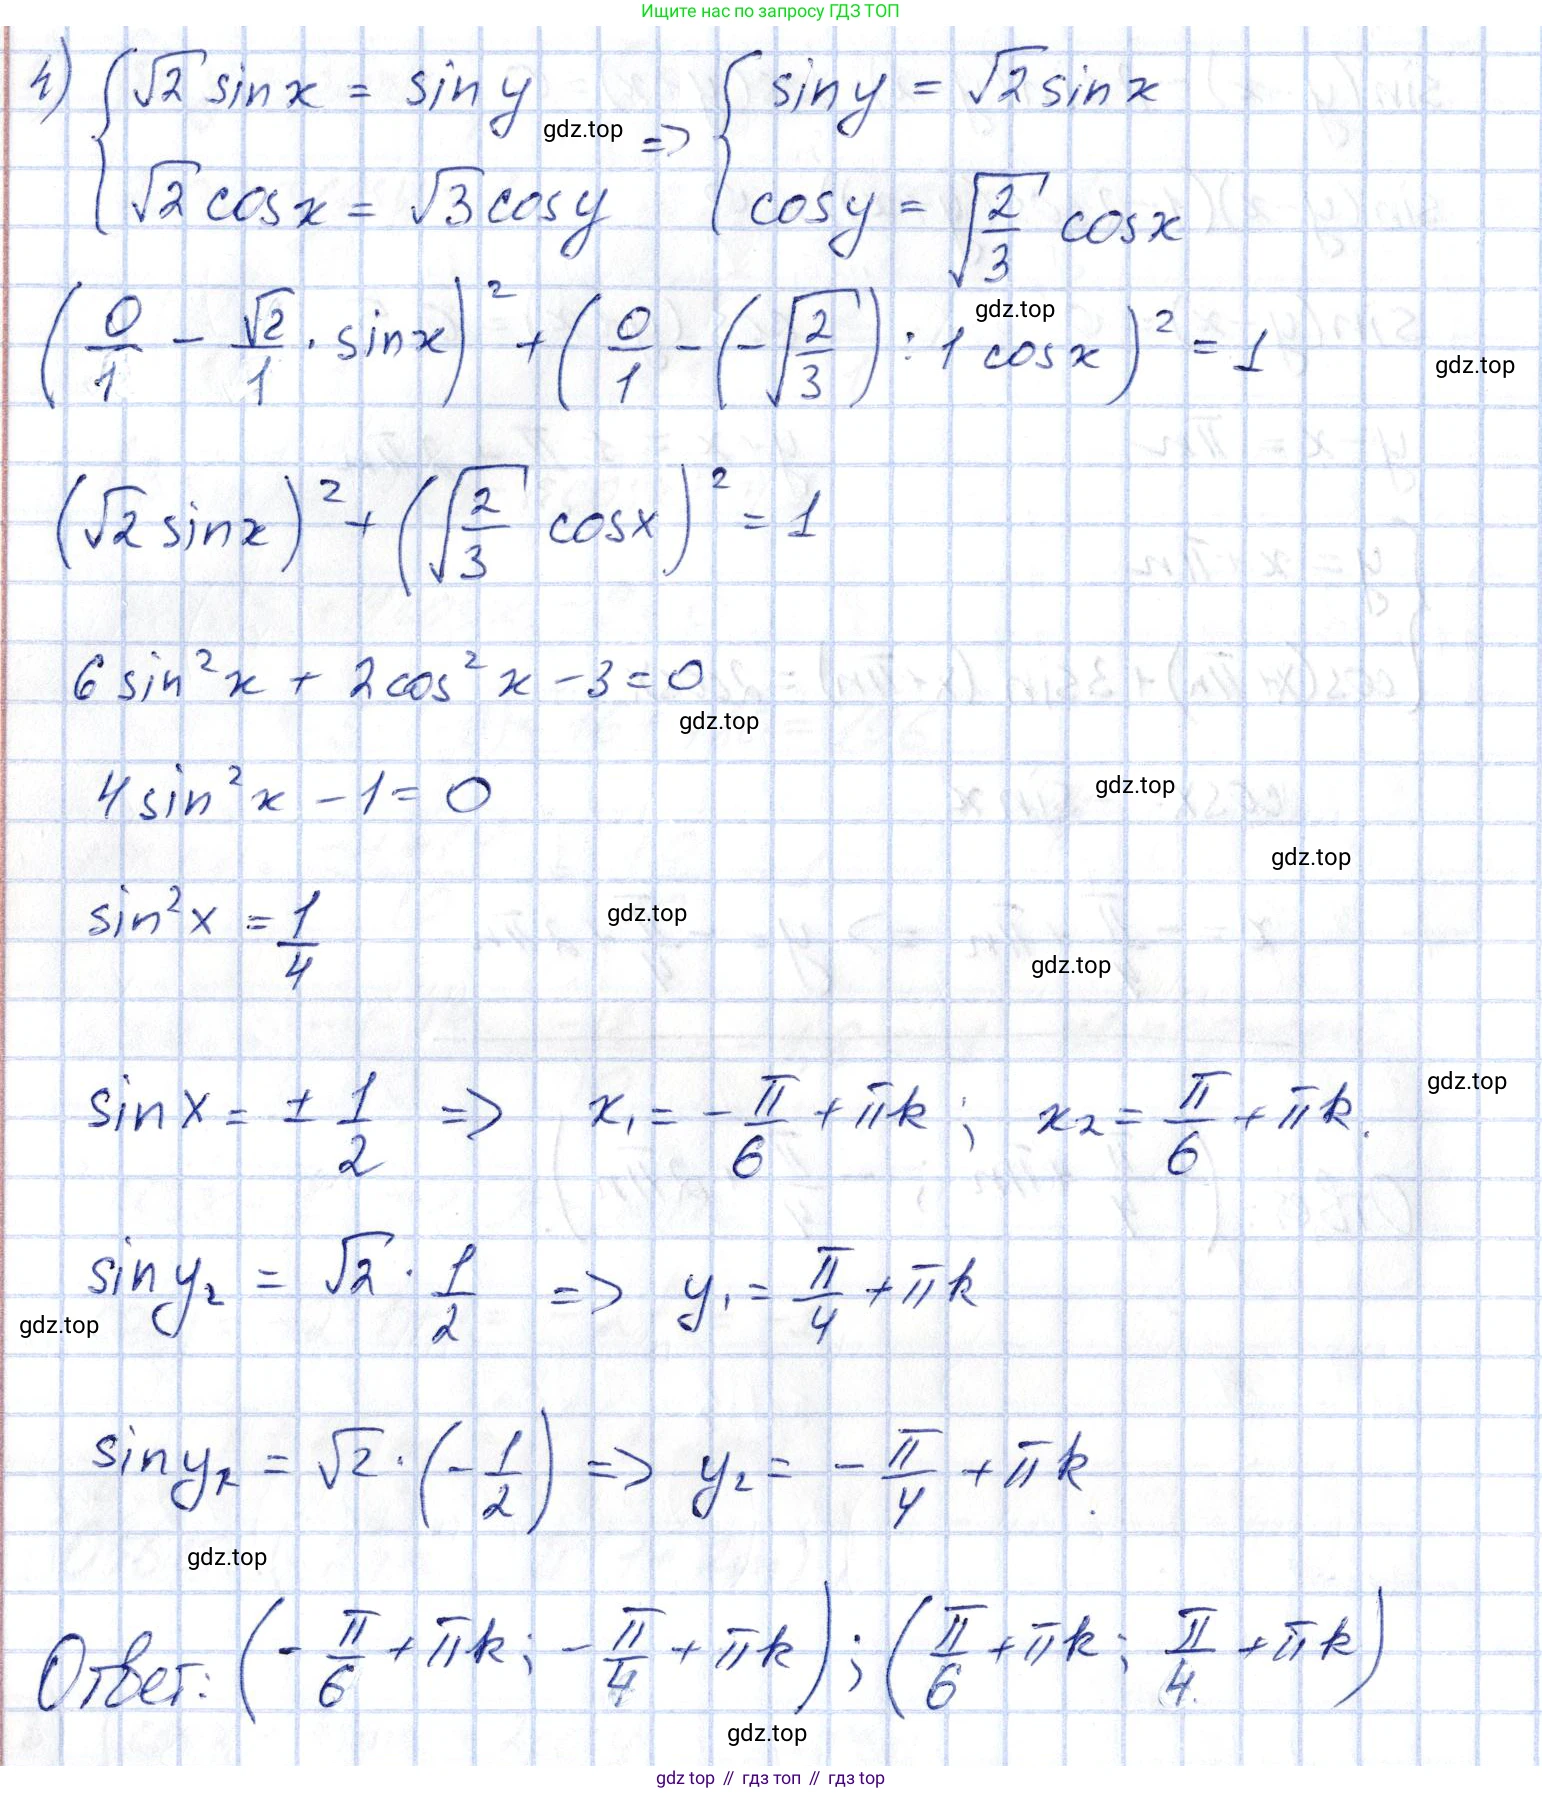 Ищите нас по запросу ГДЗ ТОП
4) { √2 sin x = sin y => { sin y = √2 sin x
√2 cos x = √3 cos y cos y = √(2/3) cos x
gdz.top
gdz.top
(0/1 - √2/1 · sin x)² + (0/1 - (-√(2/3)) : 1 cos x)² = 1
gdz.top
(√2 sin x)² + (√(2/3) cos x)² = 1
6 sin² x + 2 cos² x - 3 = 0
gdz.top
4 sin² x - 1 = 0
gdz.top
gdz.top
sin² x = 1/4
gdz.top
gdz.top
gdz.top
sin x = ± 1/2 => x₁ = - π/6 + πk ; x₂ = π/6 + πk.
sin y₂ = √2 · 1/2 => y₁ = π/4 + πk
gdz.top
sin y₂ = √2 · (- 1/2) => y₂ = - π/4 + πk.
gdz.top
Ответ: (- π/6 + πk ; - π/4 + πk) ; (π/6 + πk ; π/4 + πk)
gdz.top
gdz top // гдз топ // gdz top